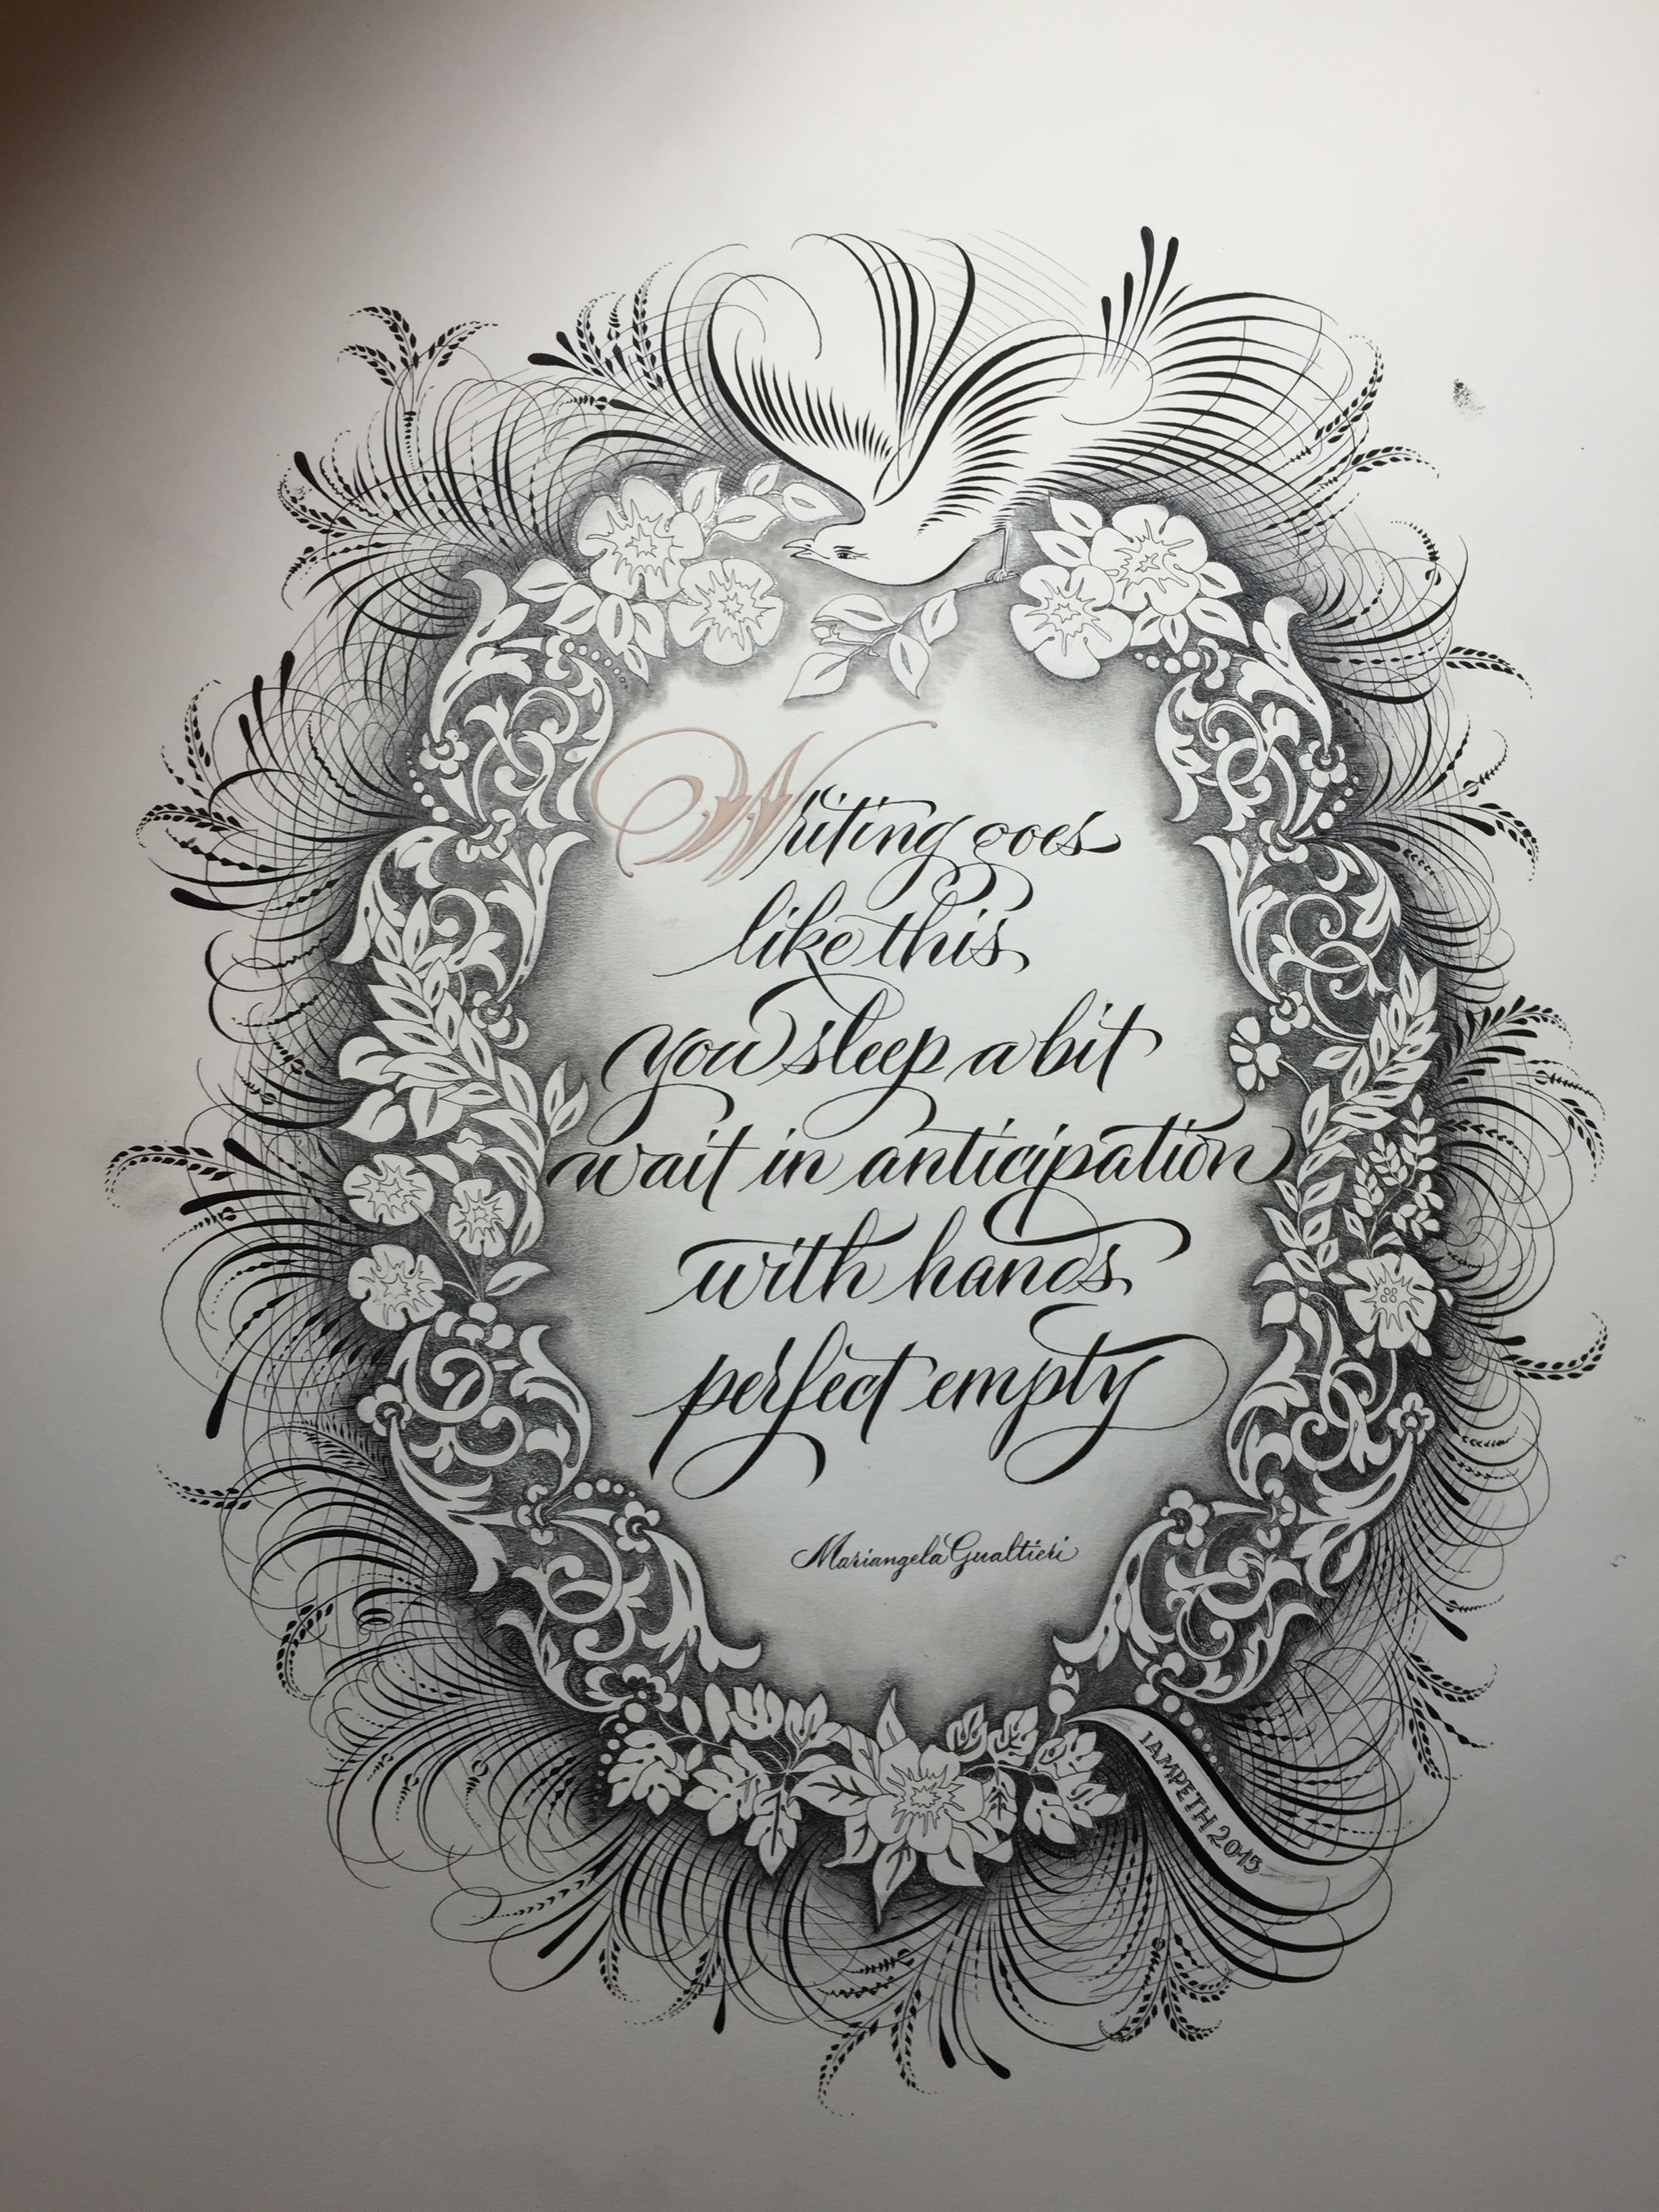 Writing goes
like this
you sleep a bit
wait in anticipation
with hands
perfect empty
Mariangela Gualtieri
IAMPETH 2015